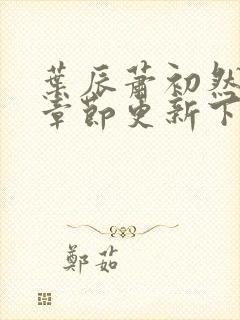 葉辰蕭初然
章節更新下
鄭茹